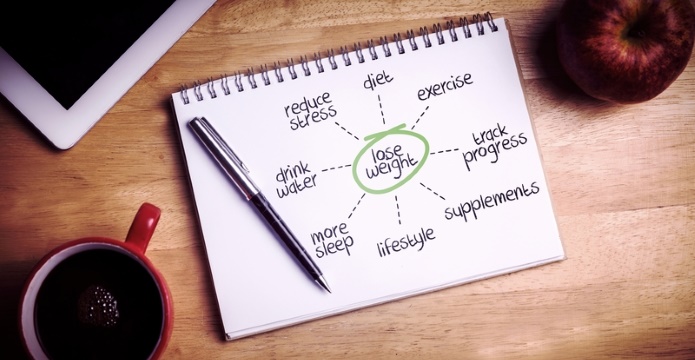 diet
exercise
reduce
stress
track
progress
lose
weight
drink
water
supplements
more
sleep
lifestyle